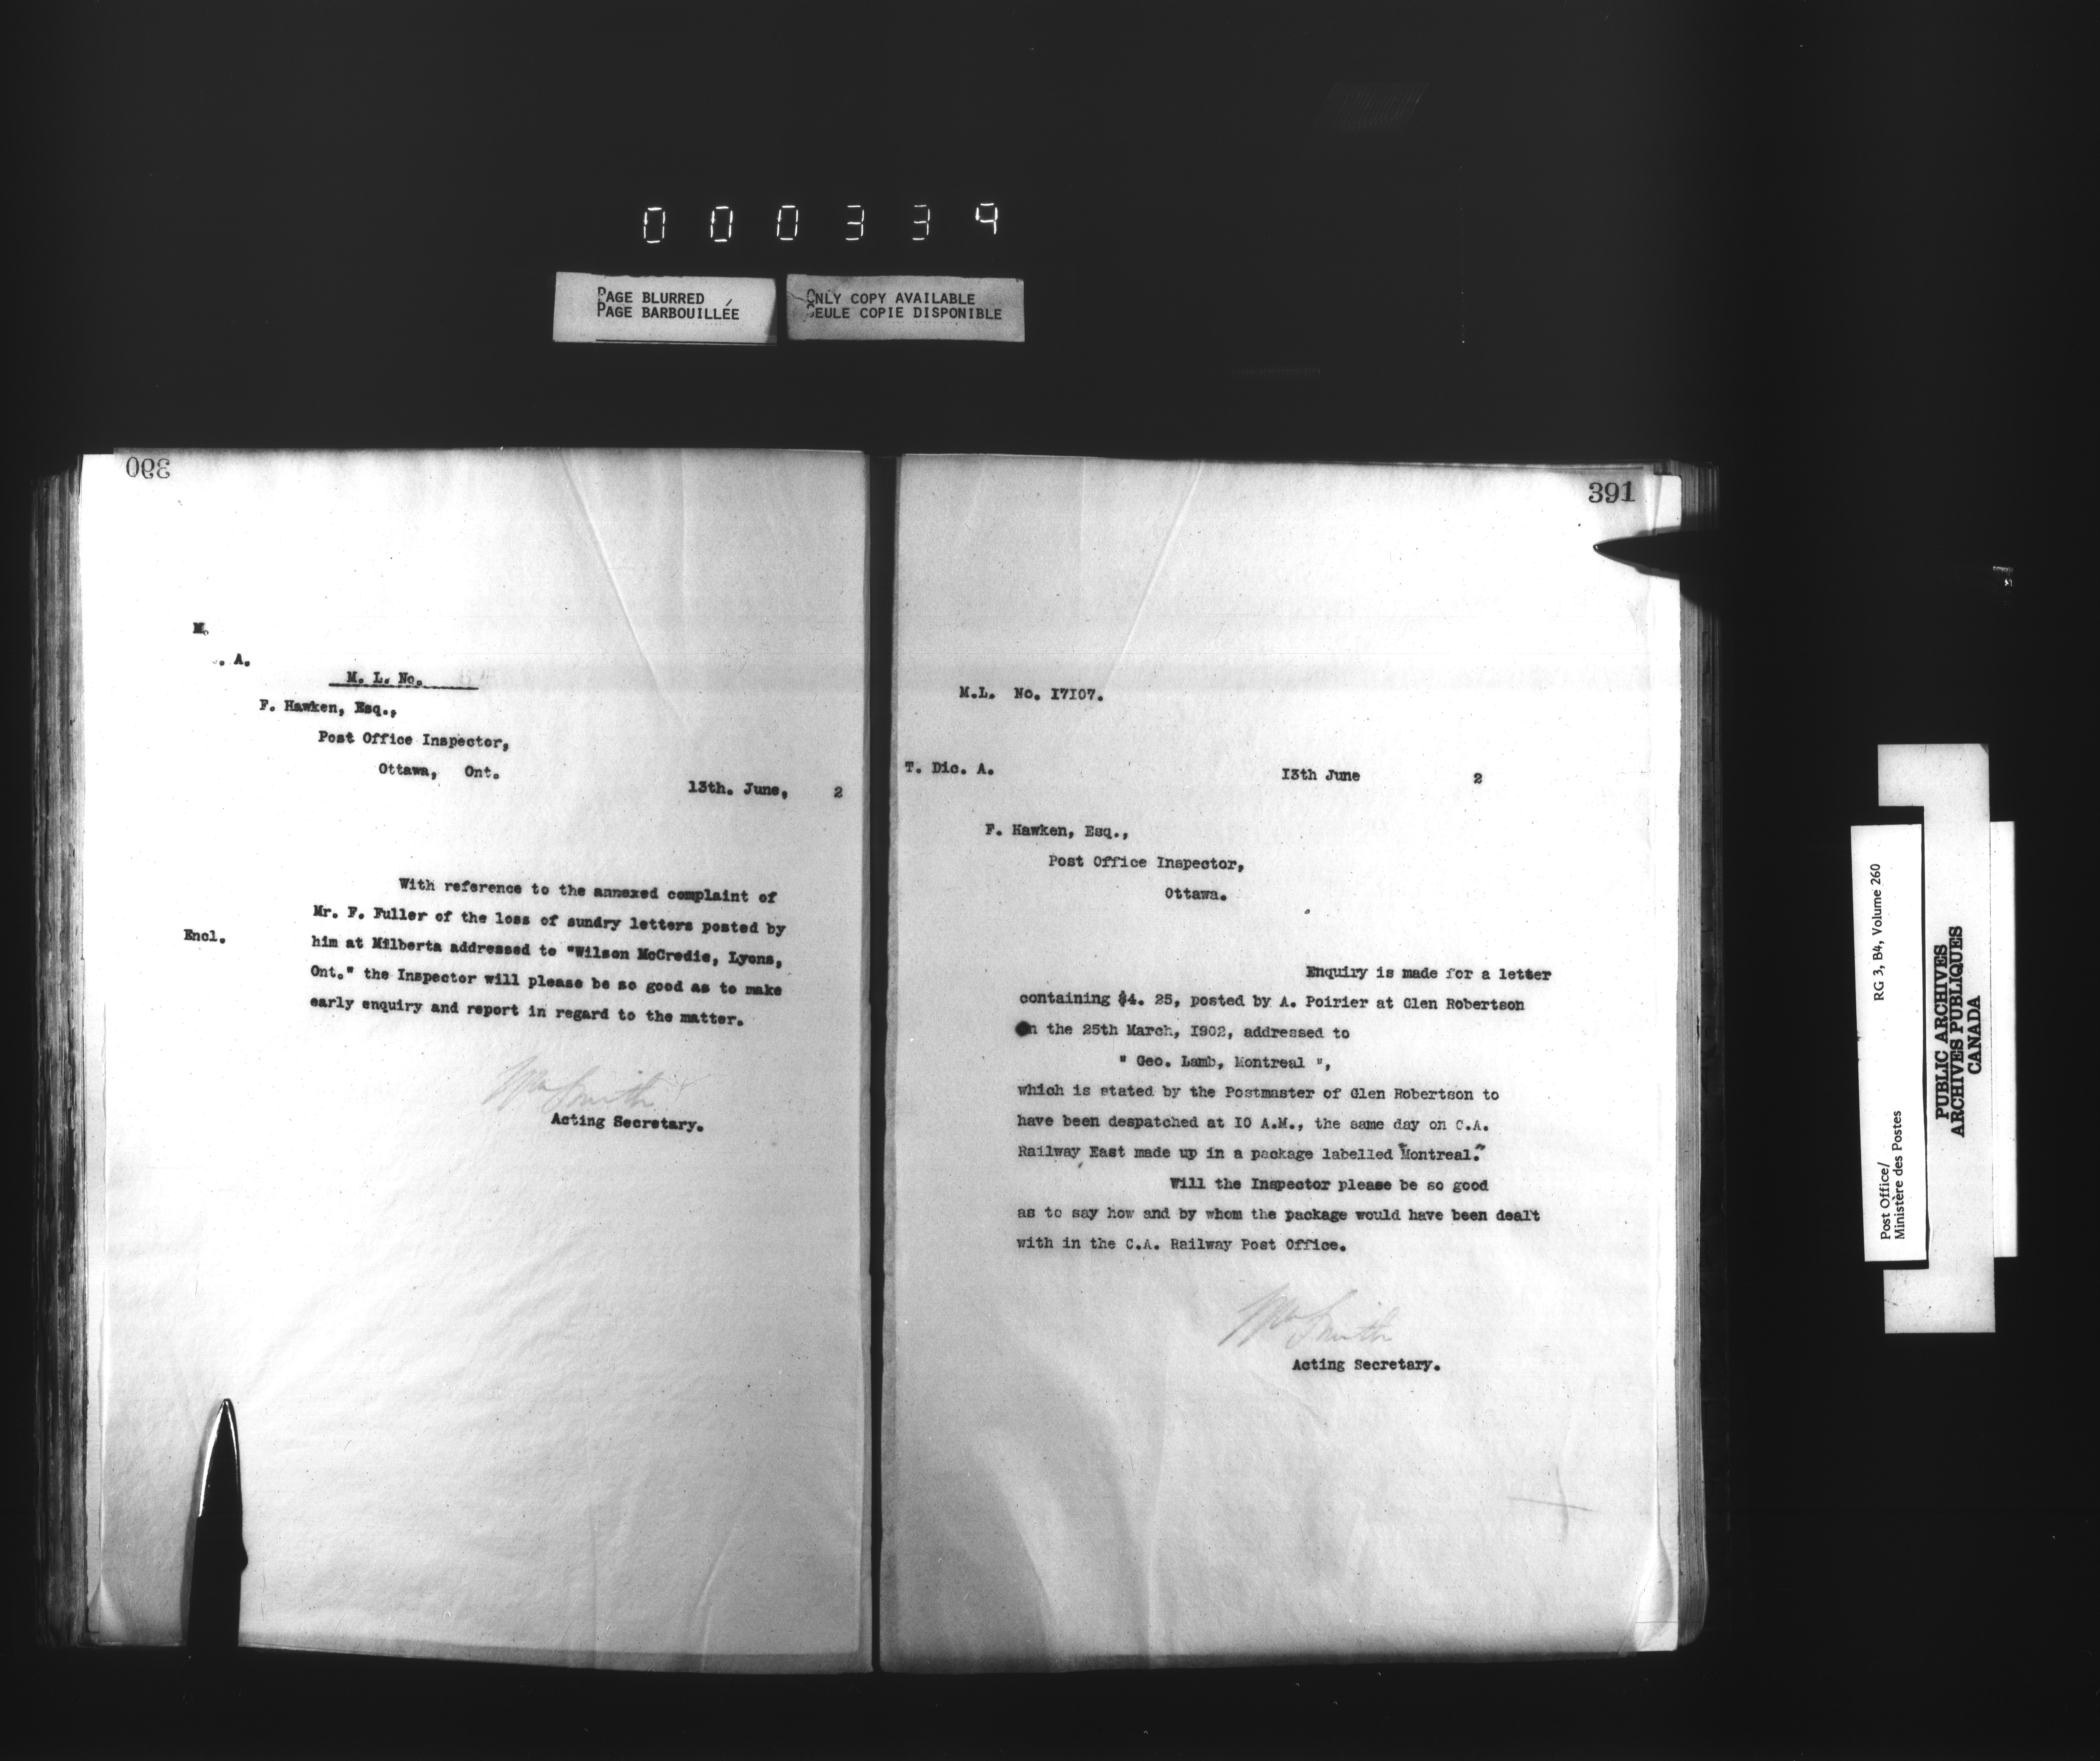 000339
PAGE BLURRED
PAGE BARBOUILLÉE
ONLY COPY AVAILABLE
SEULE COPIE DISPONIBLE
390
M.
. A.
M. L. No.
F. Hawken, Esq.,
Post Office Inspector,
Ottawa, Ont.
13th. June, 2
With reference to the annexed complaint of
Mr. F. Fuller of the loss of sundry letters posted by
Encl.
him at Milberta addressed to "Wilson McCredie, Lyons,
Ont." the Inspector will please be so good as to make
early enquiry and report in regard to the matter.
Wm Smith
Acting Secretary.
391
M.L. No. I7I07.
T. Dic. A.
I3th June 2
F. Hawken, Esq.,
Post Office Inspector,
Ottawa.
Enquiry is made for a letter
containing $4. 25, posted by A. Poirier at Glen Robertson
on the 25th March, I902, addressed to
" Geo. Lamb, Montreal ",
which is stated by the Postmaster of Glen Robertson to
have been despatched at I0 A.M., the same day on C.A.
Railway East made up in a package labelled "Montreal."
Will the Inspector please be so good
as to say how and by whom the package would have been dealt
with in the C.A. Railway Post Office.
Wm Smith
Acting Secretary.
Post Office/
Ministère des Postes
RG 3, B4, Volume 260
PUBLIC ARCHIVES
ARCHIVES PUBLIQUES
CANADA